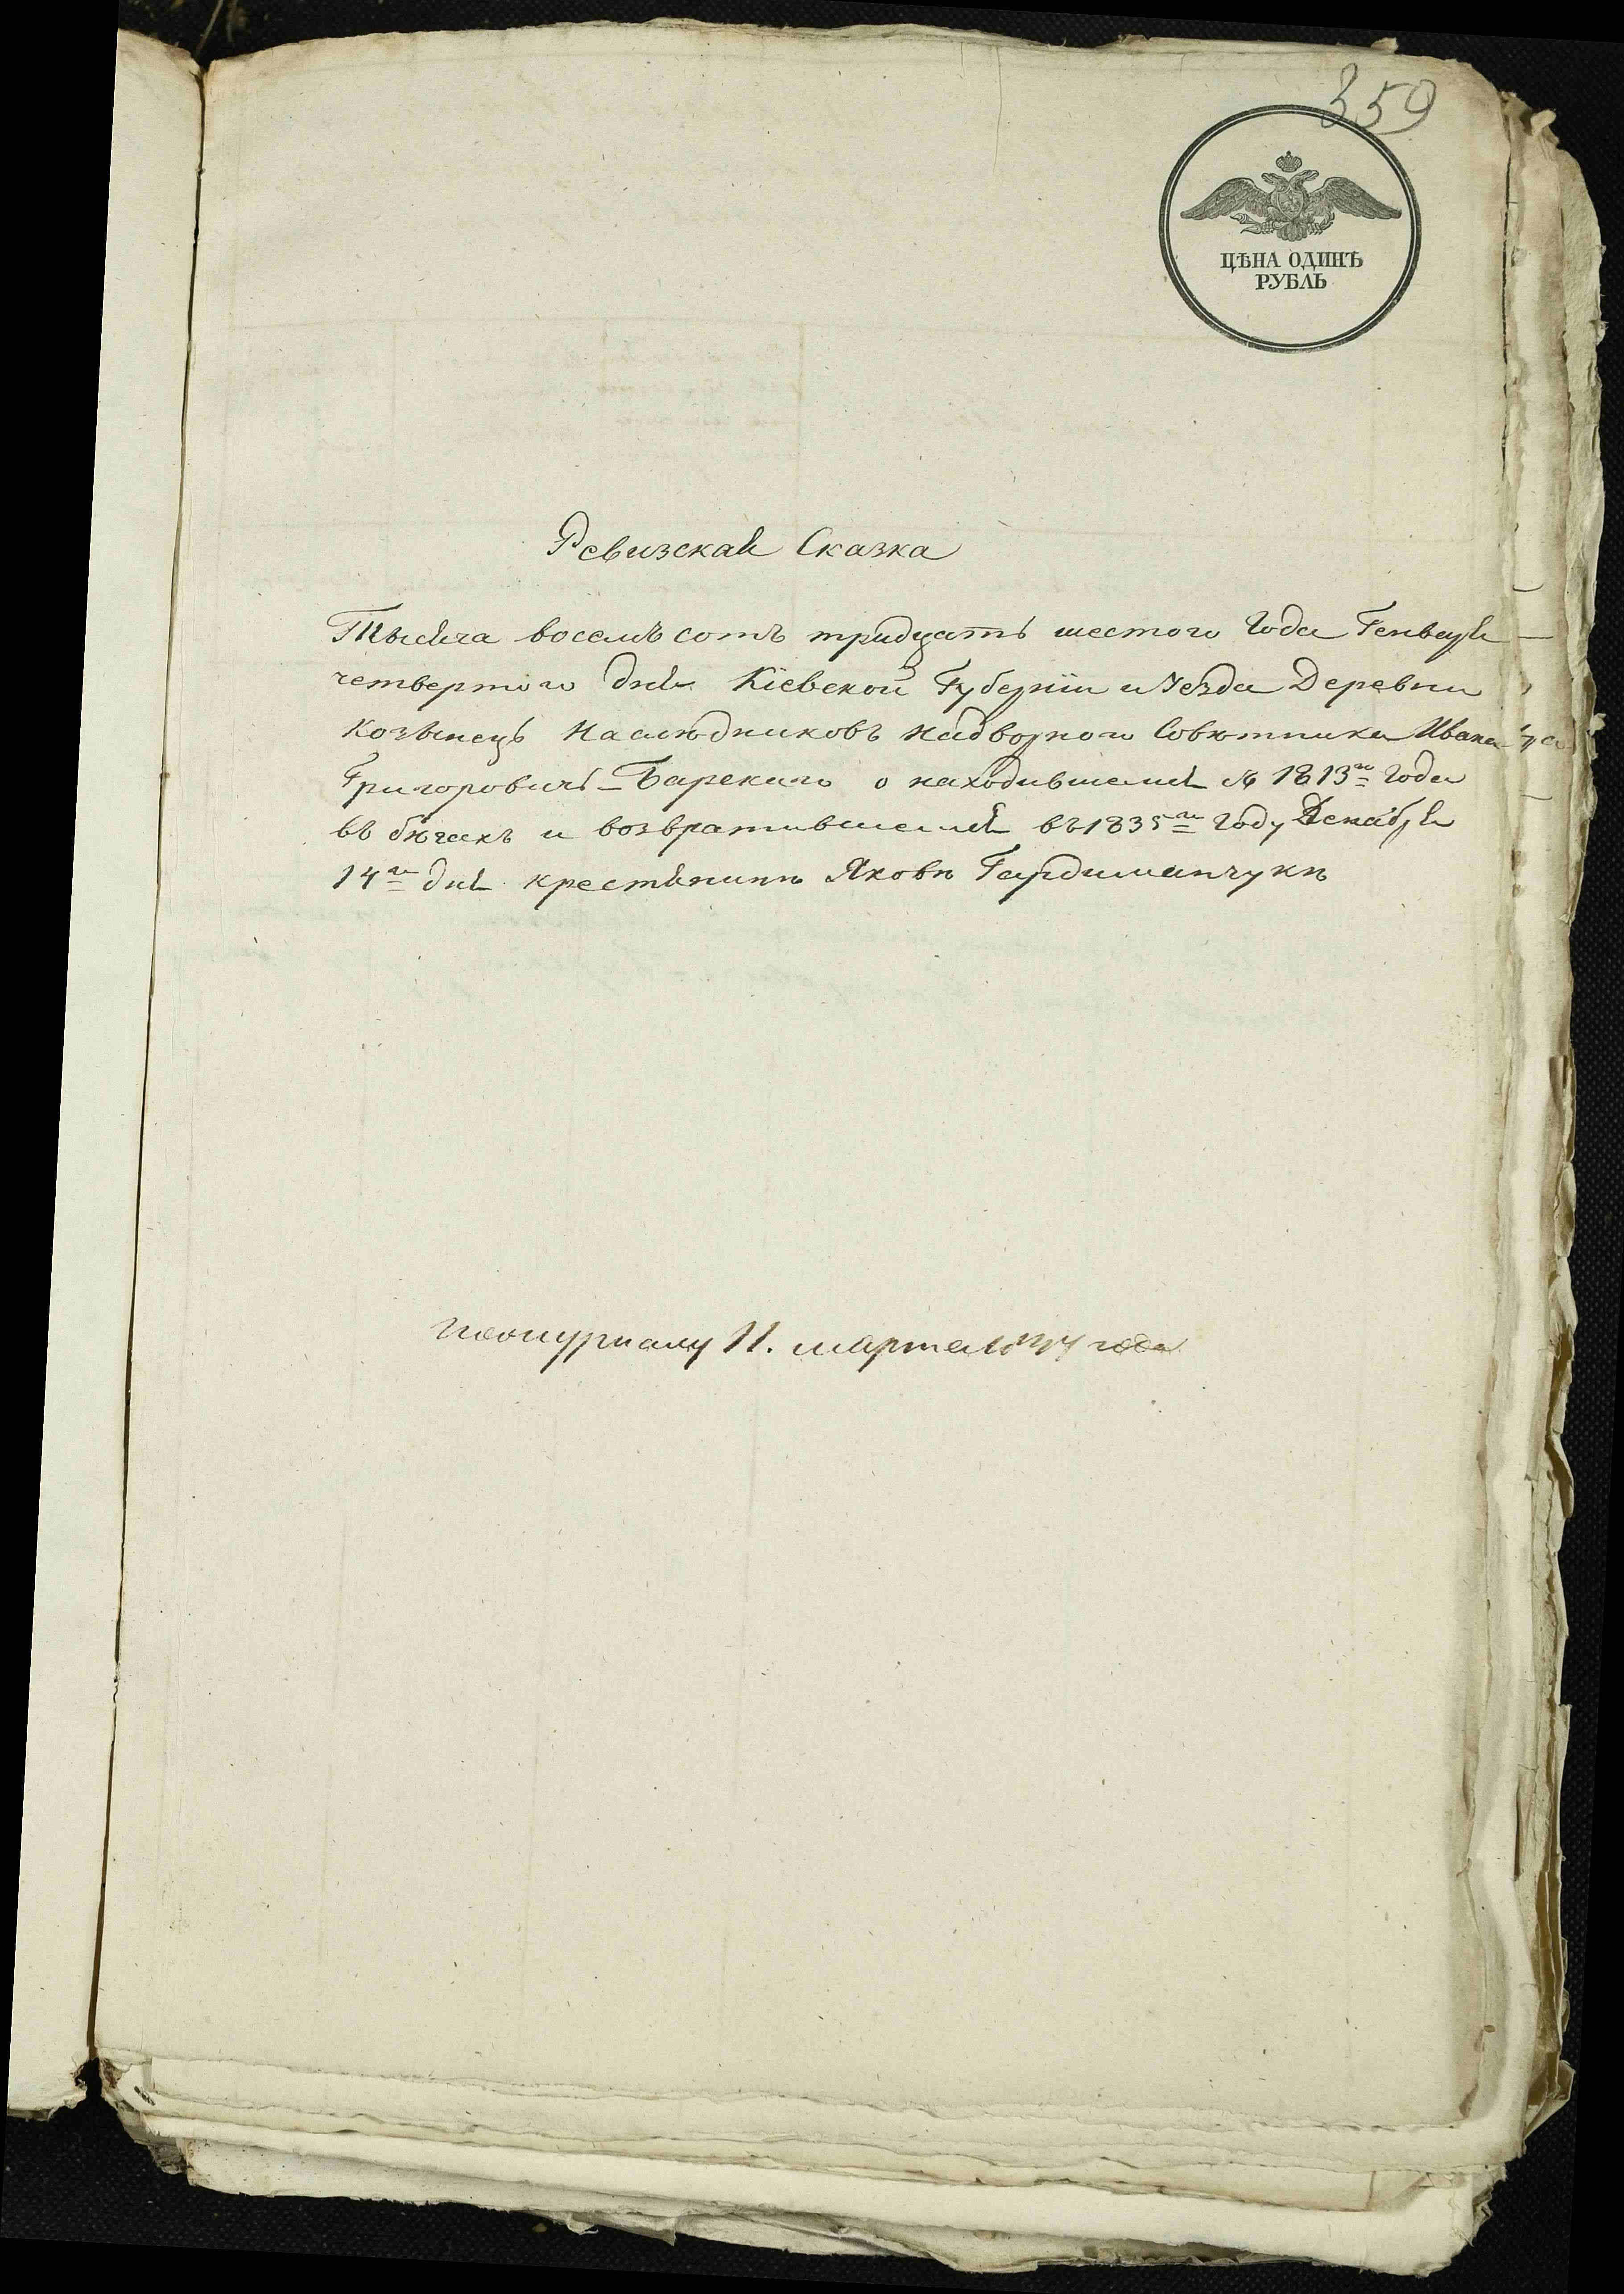 359
ЦѢНА ОДИНЪ
РУБЛЬ
Ревизская Сказка
Тысяча восемъ сотъ тридцать шестого года Генваря
четвертого дня Кіевской Губерніи и Уезда Деревни
Козѣнецъ Наслѣдниковъ Надворного Совѣтника Ивана
Григоровичъ-Барского о находившемся съ 1813го года
въ бѣгахъ и возвратившемся въ 1835м году Декабря
14го дня крестянинѣ Яковѣ Гардиманчукѣ
11. марта года